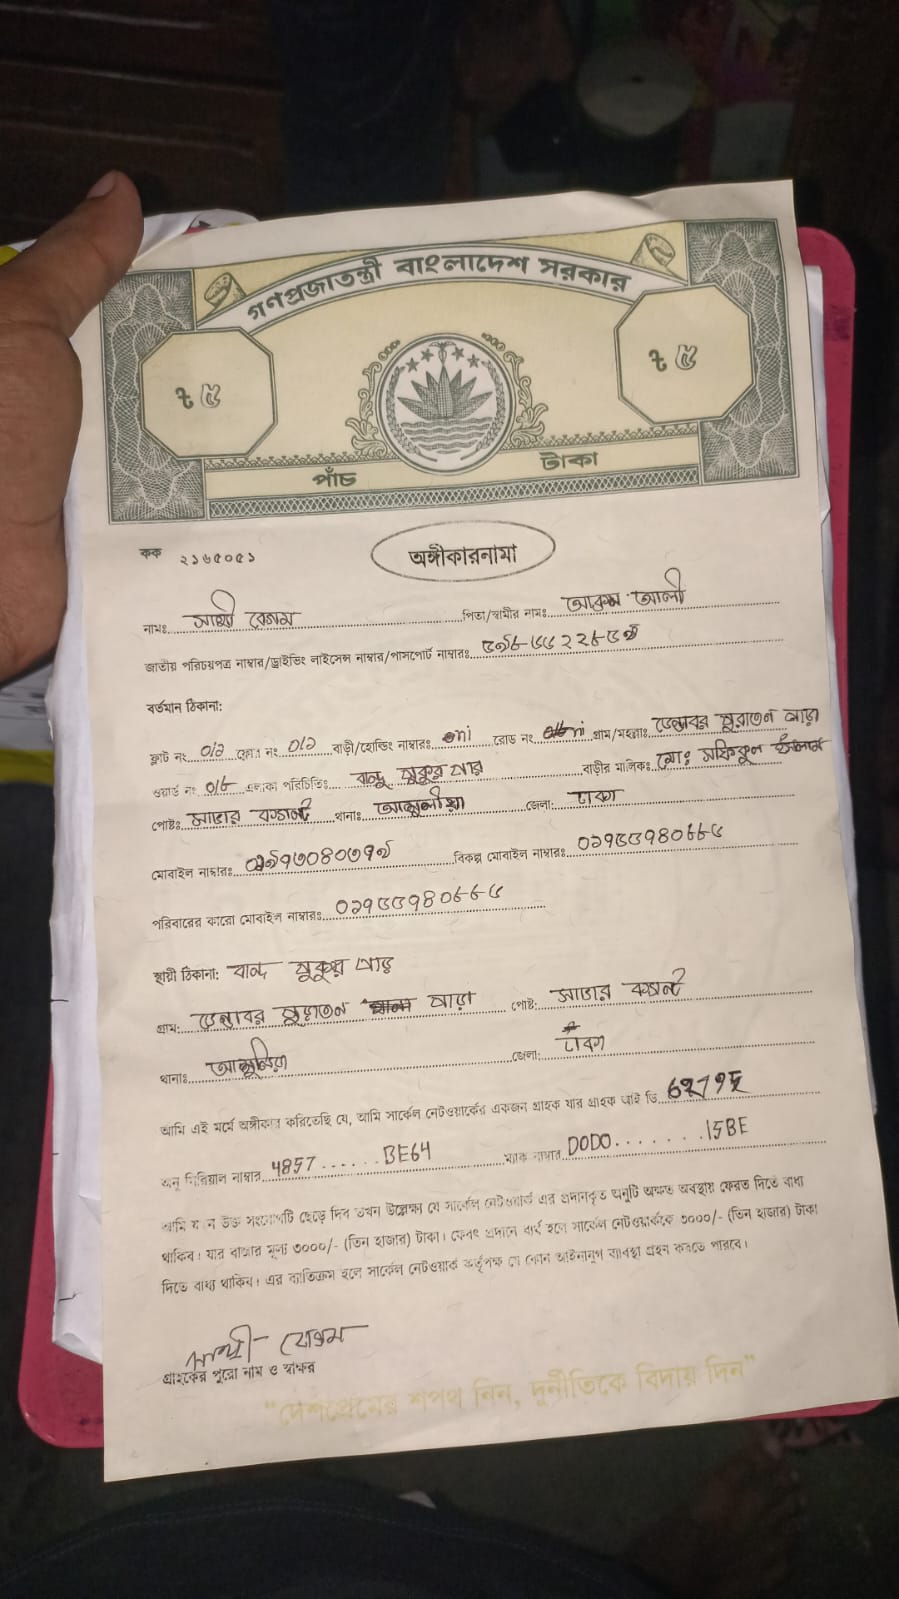 গণপ্রজাতন্ত্রী বাংলাদেশ সরকার
৳ ৫ ৳ ৫
পাঁচ টাকা
কক ২১৬৫০৫১
অঙ্গীকারনামা
নামঃ সাথী বেগম পিতা/স্বামীর নামঃ আলী
জাতীয় পরিচয়পত্র নাম্বার/ড্রাইভিং লাইসেন্স নাম্বার/পাসপোর্ট নাম্বারঃ
বর্তমান ঠিকানা:
ফ্লাট নং ০/১ ফ্লোর নং ০/১ বাড়ী/হোল্ডিং নাম্বারঃ রোড নং গ্রাম/মহল্লাঃ পুরাতন পাড়া
ওয়ার্ড নং ০/৮ এলাকা পরিচিতিঃ পুকুর পার বাড়ীর মালিকঃ মোঃ সফিকুল ইসলাম
পোষ্টঃ সাভার থানাঃ আশুলীয়া জেলা: ঢাকা
মোবাইল নাম্বারঃ বিকল্প মোবাইল নাম্বারঃ
পরিবারের কারো মোবাইল নাম্বারঃ
স্থায়ী ঠিকানা: পুকুর পাড়
গ্রাম: পুরাতন পাড়া পোষ্ট: সাভার
থানাঃ আশুলিয়া জেলা: ঢাকা
আমি এই মর্মে অঙ্গীকার করিতেছি যে, আমি সার্কেল নেটওয়ার্কের একজন গ্রাহক যার গ্রাহক আই ডি
অনু সিরিয়াল নাম্বার 4857......BE64 ম্যাক নাম্বার D0D0.......15BE
আমি যখন উক্ত সংযোগটি ছেড়ে দিব তখন উল্লেক্ষ্য যে সার্কেল নেটওয়ার্ক এর প্রদানকৃত অনুটি অক্ষত অবস্থায় ফেরত দিতে বাধ্য
থাকিব। যার বাজার মূল্য ৩০০০/- (তিন হাজার) টাকা। ফেরৎ প্রদানে ব্যর্থ হলে সার্কেল নেটওয়ার্ককে ৩০০০/- (তিন হাজার) টাকা
দিতে বাধ্য থাকিব। এর ব্যতিক্রম হলে সার্কেল নেটওয়ার্ক কর্তৃপক্ষ যে কোন আইনানুগ ব্যাবস্থা গ্রহন করতে পারবে।
সাথী বেগম
গ্রাহকের পুরো নাম ও স্বাক্ষর
"দেশপ্রেমের শপথ নিন, দুর্নীতিকে বিদায় দিন"